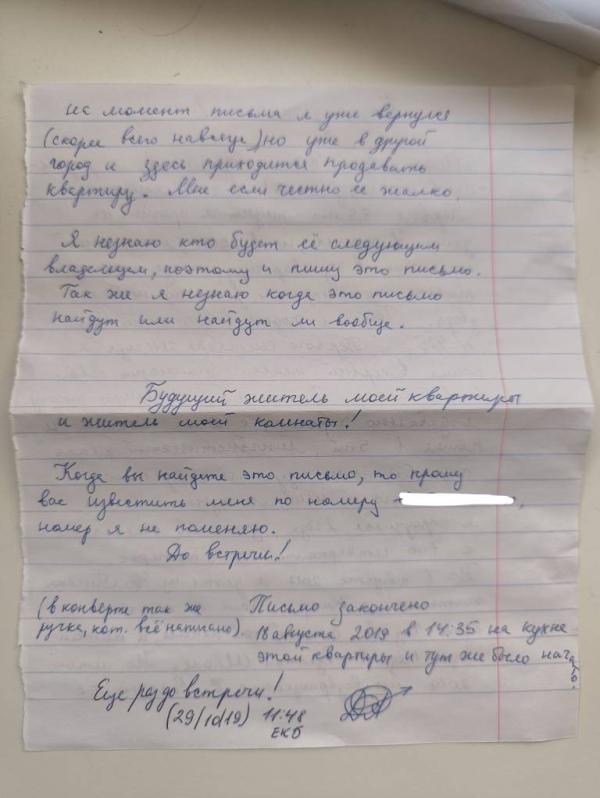 на момент письма я уже вернулся
(скорее всего навсегда) но уже в другой
город и здесь приходится продавать
квартиру. Мне если честно её жалко.
Я незнаю кто будет её следующим
владельцем, поэтому и пишу это письмо.
Так же я незнаю когда это письмо
найдут или найдут ли вообще.
Будущий житель моей квартиры
и житель моей комнаты!
Когда вы найдёте это письмо, то прошу
вас известить меня по номеру
номер я не поменяю.
До встречи!
(в конверте так же
ручка, кот. всё написано).
Письмо закончено
18 августа 2019 в 14:35 на кухне
этой квартиры и тут же было начато.
Еще раз до встречи!
(29/10/19) 11:48
ЕКБ